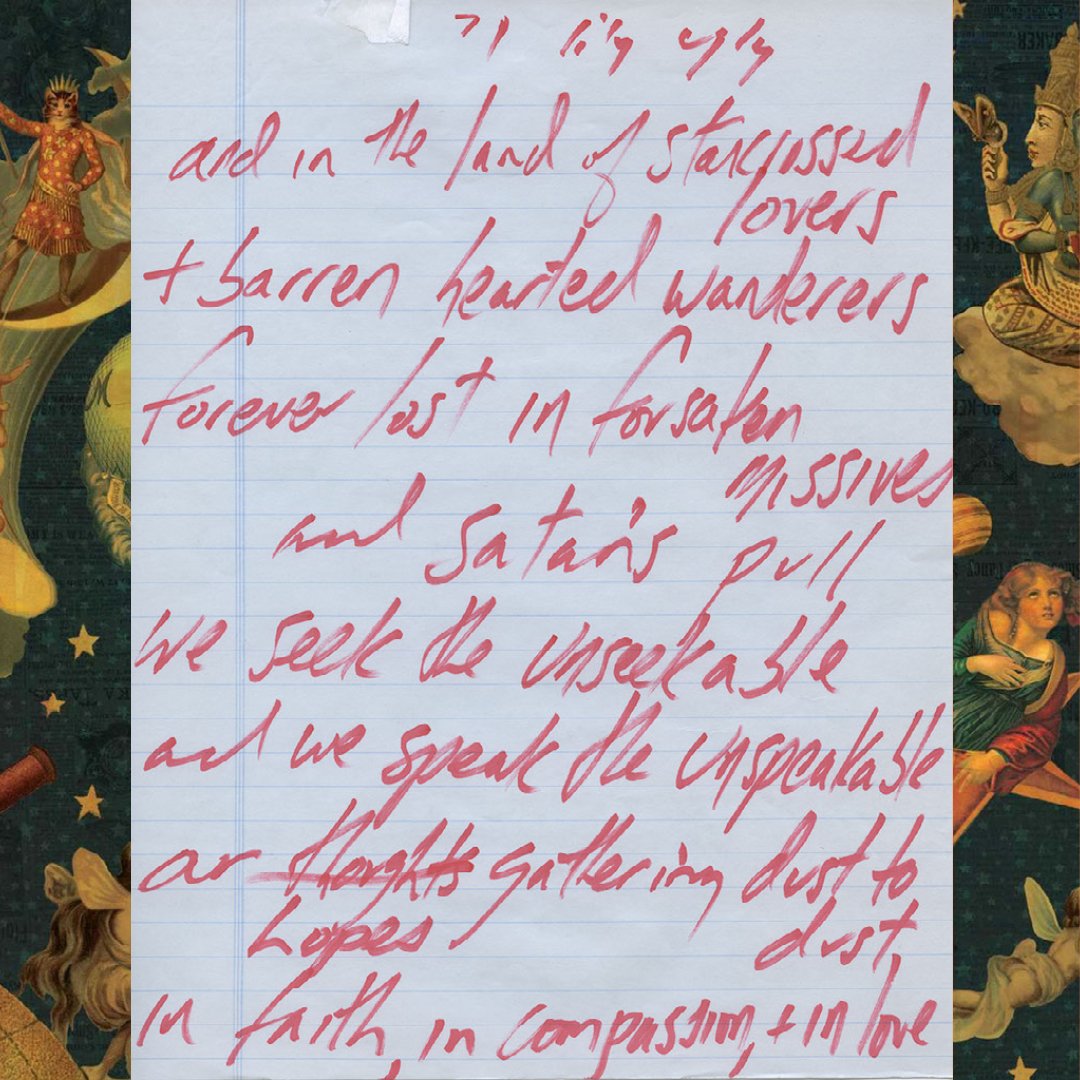 and in the land of starcrossed
lovers
+ barren hearted wanderers
forever lost in forsaken
missives
and satan's pull
we seek the unseekable
and we speak the unspeakable
our thoughts gathering dust to
hopes dust,
in faith, in compassion, + in love